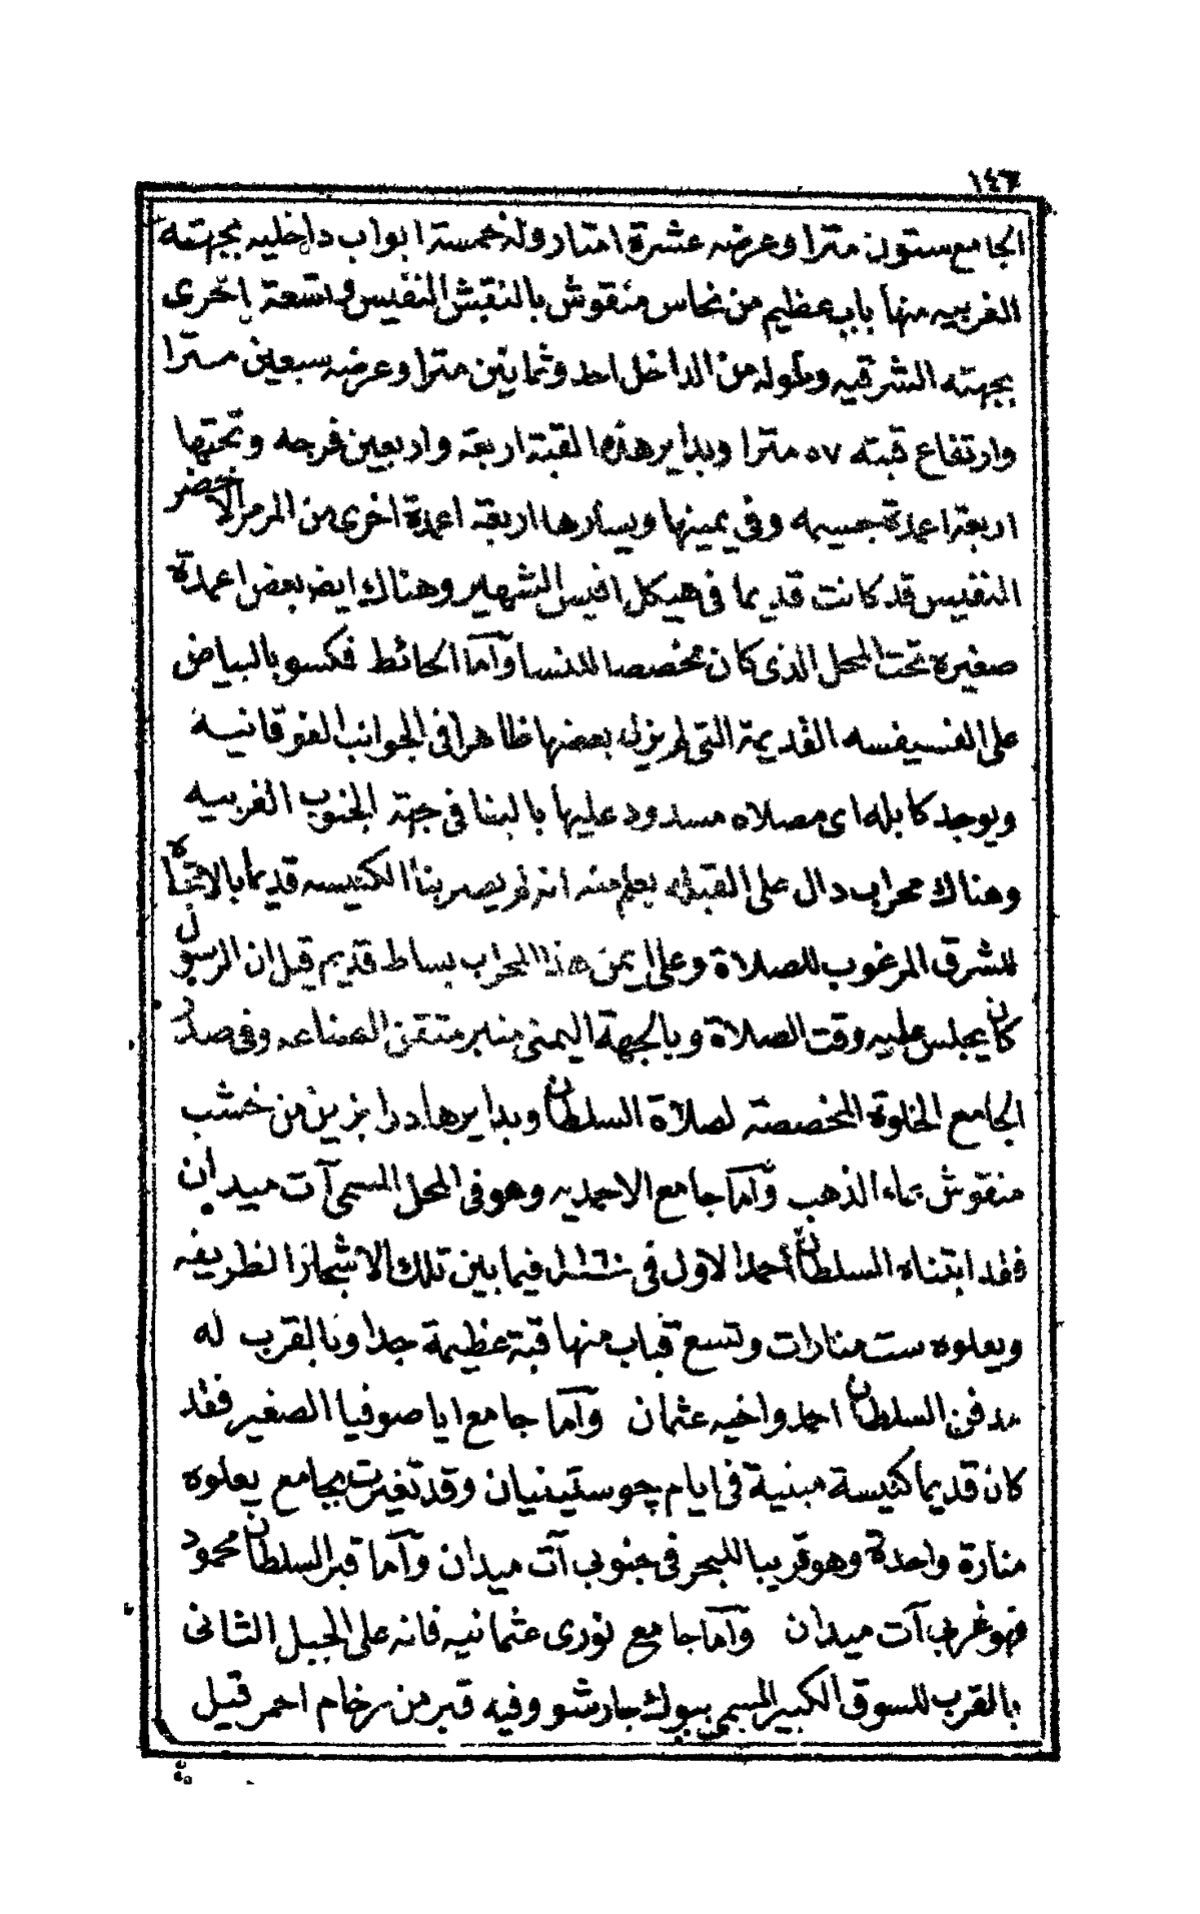 ١٤٦
الجامع ستون مترا وعرضه عشرة امتار وله خمسة ابواب داخليه بجهته
الغربيه منها باب عظيم من نحاس منقوش بالنقش النفيس وتسعة اخرى
بجهته الشرقيه وطوله من الداخل احد وثمانين مترا وعرضه سبعين مترا
وارتفاع قبته ٥٧ مترا وبدايرهذه القبة اربعة واربعين فرجه وتحتها
اربعة اعمدة جسيمه وفى يمينها ويسارها اربعة اعمدة اخرى من المرمر الاخضر
النفيس قد كانت قديما فى هيكل افيس الشهير وهناك ايض بعض اعمدة
صغيرة تحت المحل الذى كان مخصصا للنسا وأما الحائط فكسو بالبياض
على الفسيفسه القديمة التى لم يزل بعضها ظاهرا فى الجوانب الفوقانيه
ويوجد كابله اى مصلاه مسدود عليها بالبنا فى جهة الجنوب الغربيه
وهناك محراب دال على القبله يعلم منه انه لم يصر بنا الكنيسه قديما بالاتجاه
للشرق المرغوب للصلاة وعلى ايمن هذا المحراب بساط قديم قيل ان الرسول
كان يجلس عليه وقت الصلاة وبالجهة اليمنى منبر متقن الصناعه وفى صدر
الجامع الخلوة المخصصة لصلاة السلطان وبدايرها درابزين من خشب
منقوش بماء الذهب وأما جامع الاحمديه وهو فى المحل المسمى آت ميدان
فقد ابتناه السلطان أحمد الاول فى سنة ١١٦ فيما بين تلك الاشجار الظريفه
ويعلوه ست منارات وتسع قباب منها قبة عظيمة جدا وبالقرب له
مدفن السلطان احمد واخيه عثمان وأما جامع ايا صوفيا الصغير فقد
كان قديما كنيسة مبنية فى ايام چوستينيان وقد تغيرت بجامع يعلوه
منارة واحدة وهو قريبا للبحر فى جنوبى آت ميدان وأما قبر السلطان محمود
فهو غربى آت ميدان وأما جامع نورى عثمانيه فانه على الجبل الثانى
بالقرب للسوق الكبير المسمى ببوك جارشو وفيه قبر من رخام احمر قيل